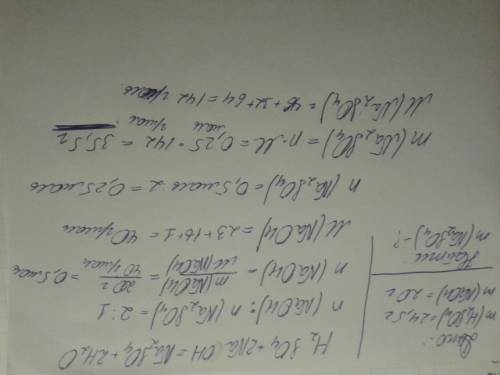 Дано:
m(H₂SO₄)=24,5 г
m(NaOH)=20 г
Найти
m(Na₂SO₄)-?
H₂SO₄+2NaOH=Na₂SO₄+2H₂O
n(NaOH):n(Na₂SO₄)=2:1
n(NaOH)=m(NaOH)/M(NaOH)=20 г/40 г/моль=0,5моль
M(NaOH)=23+16+1=40 г/моль
n(Na₂SO₄)=0,5моль:2=0,25моль
m(Na₂SO₄)=n·M=0,25моль·142 г/моль=35,5 г
M(Na₂SO₄)=46+32+64=142 г/моль.